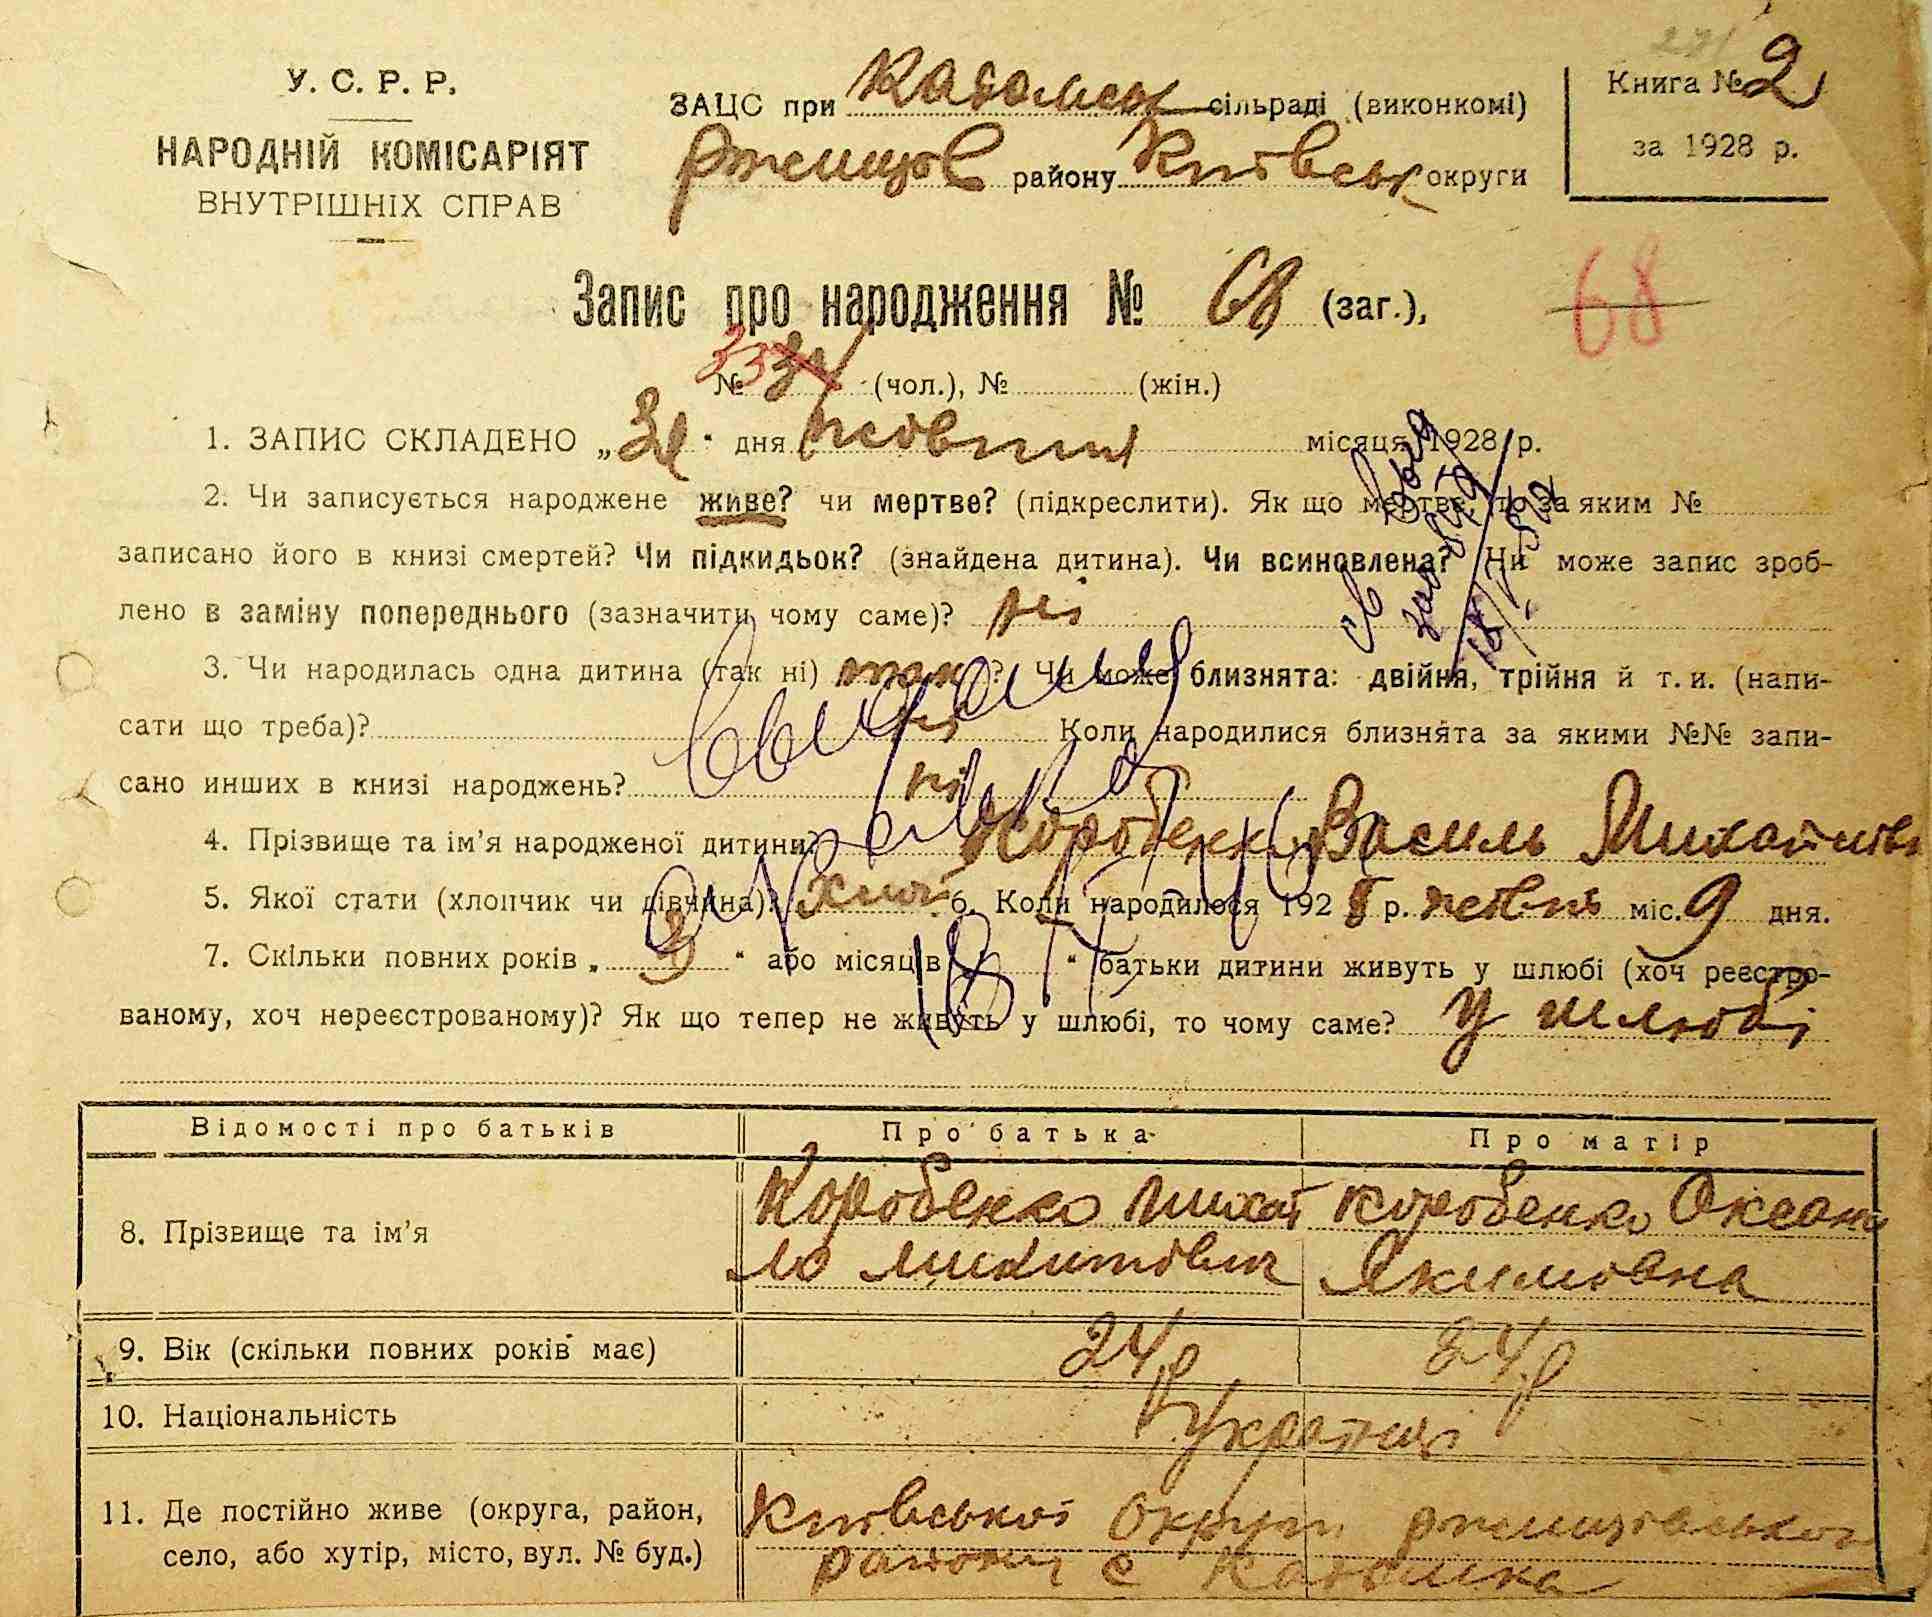 У. С. Р. Р.
НАРОДНІЙ КОМІСАРІЯТ
ВНУТРІШНІХ СПРАВ
ЗАЦС при сільраді (виконкомі)
Ржищів району Київськ округи
Книга № 2
за 1928 р.
Запис про народження № 68 (заг.),
68
№ 33 34 (чол.), № (жін.)
1. ЗАПИС СКЛАДЕНО „ “ дня жовтня місяця 1928 р.
2. Чи записується народжене живе? чи мертве? (підкреслити). Як що мертве, то за яким №
записано його в книзі смертей? Чи підкидьок? (знайдена дитина). Чи всиновлена? Чи може запис зроб-
лено в заміну попереднього (зазначити чому саме)? ні
3. Чи народилась одна дитина (так ні) так ? Чи може близнята: двійня, трійня й т. и. (напи-
сати що треба)? ні Коли народилися близнята за якими №№ запи-
сано инших в книзі народжень? ні
4. Прізвище та ім’я народженої дитини? Коробенко Василь
5. Якої стати (хлопчик чи дівчина)? хлоп 6. Коли народилося 1928 р. жовтн міс. 9 дня.
7. Скільки повних років „ 3 “ або місяців „ “ батьки дитини живуть у шлюбі (хоч реєстро-
ваному, хоч нереєстрованому)? Як що тепер не живуть у шлюбі, то чому саме? у шлюбі
Відомості про батьків Про батька Про матір
8. Прізвище та ім’я Коробенко Михай Коробенко
ло Микитович Якимовна
9. Вік (скільки повних років має) 24 р 24 р
10. Національність Українці
11. Де постійно живе (округа, район, Київської округи Ржищівського
село, або хутір, місто, вул. № буд.) району с